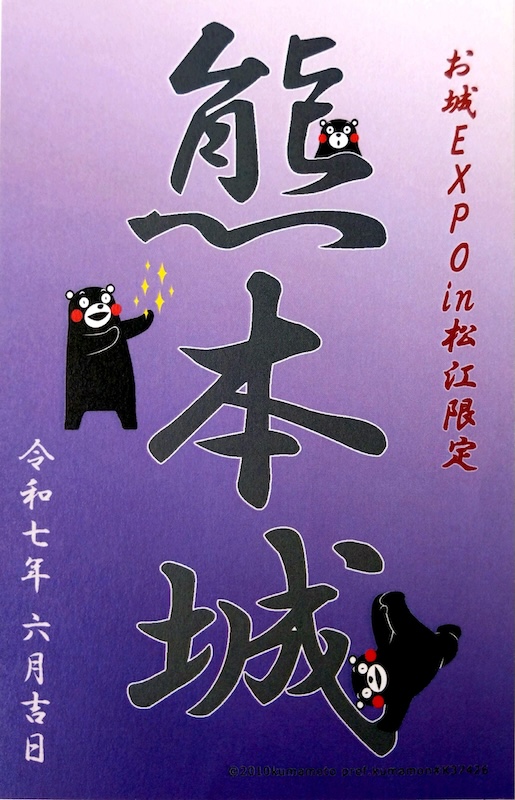 お城EXPO in 松江限定
熊本城
令和七年 六月吉日
©2010kumamoto pref.kumamon